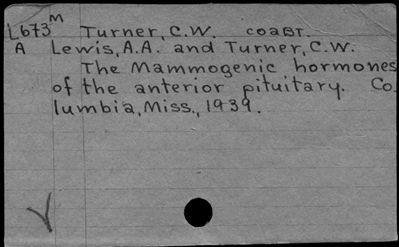 L673M Turner, C.W. coaut.
A Lewis, A.A. and Turner, C.W.
The Mammogenic hormones
of the anterior pituitary. Co
lumbia, Miss., 1939.